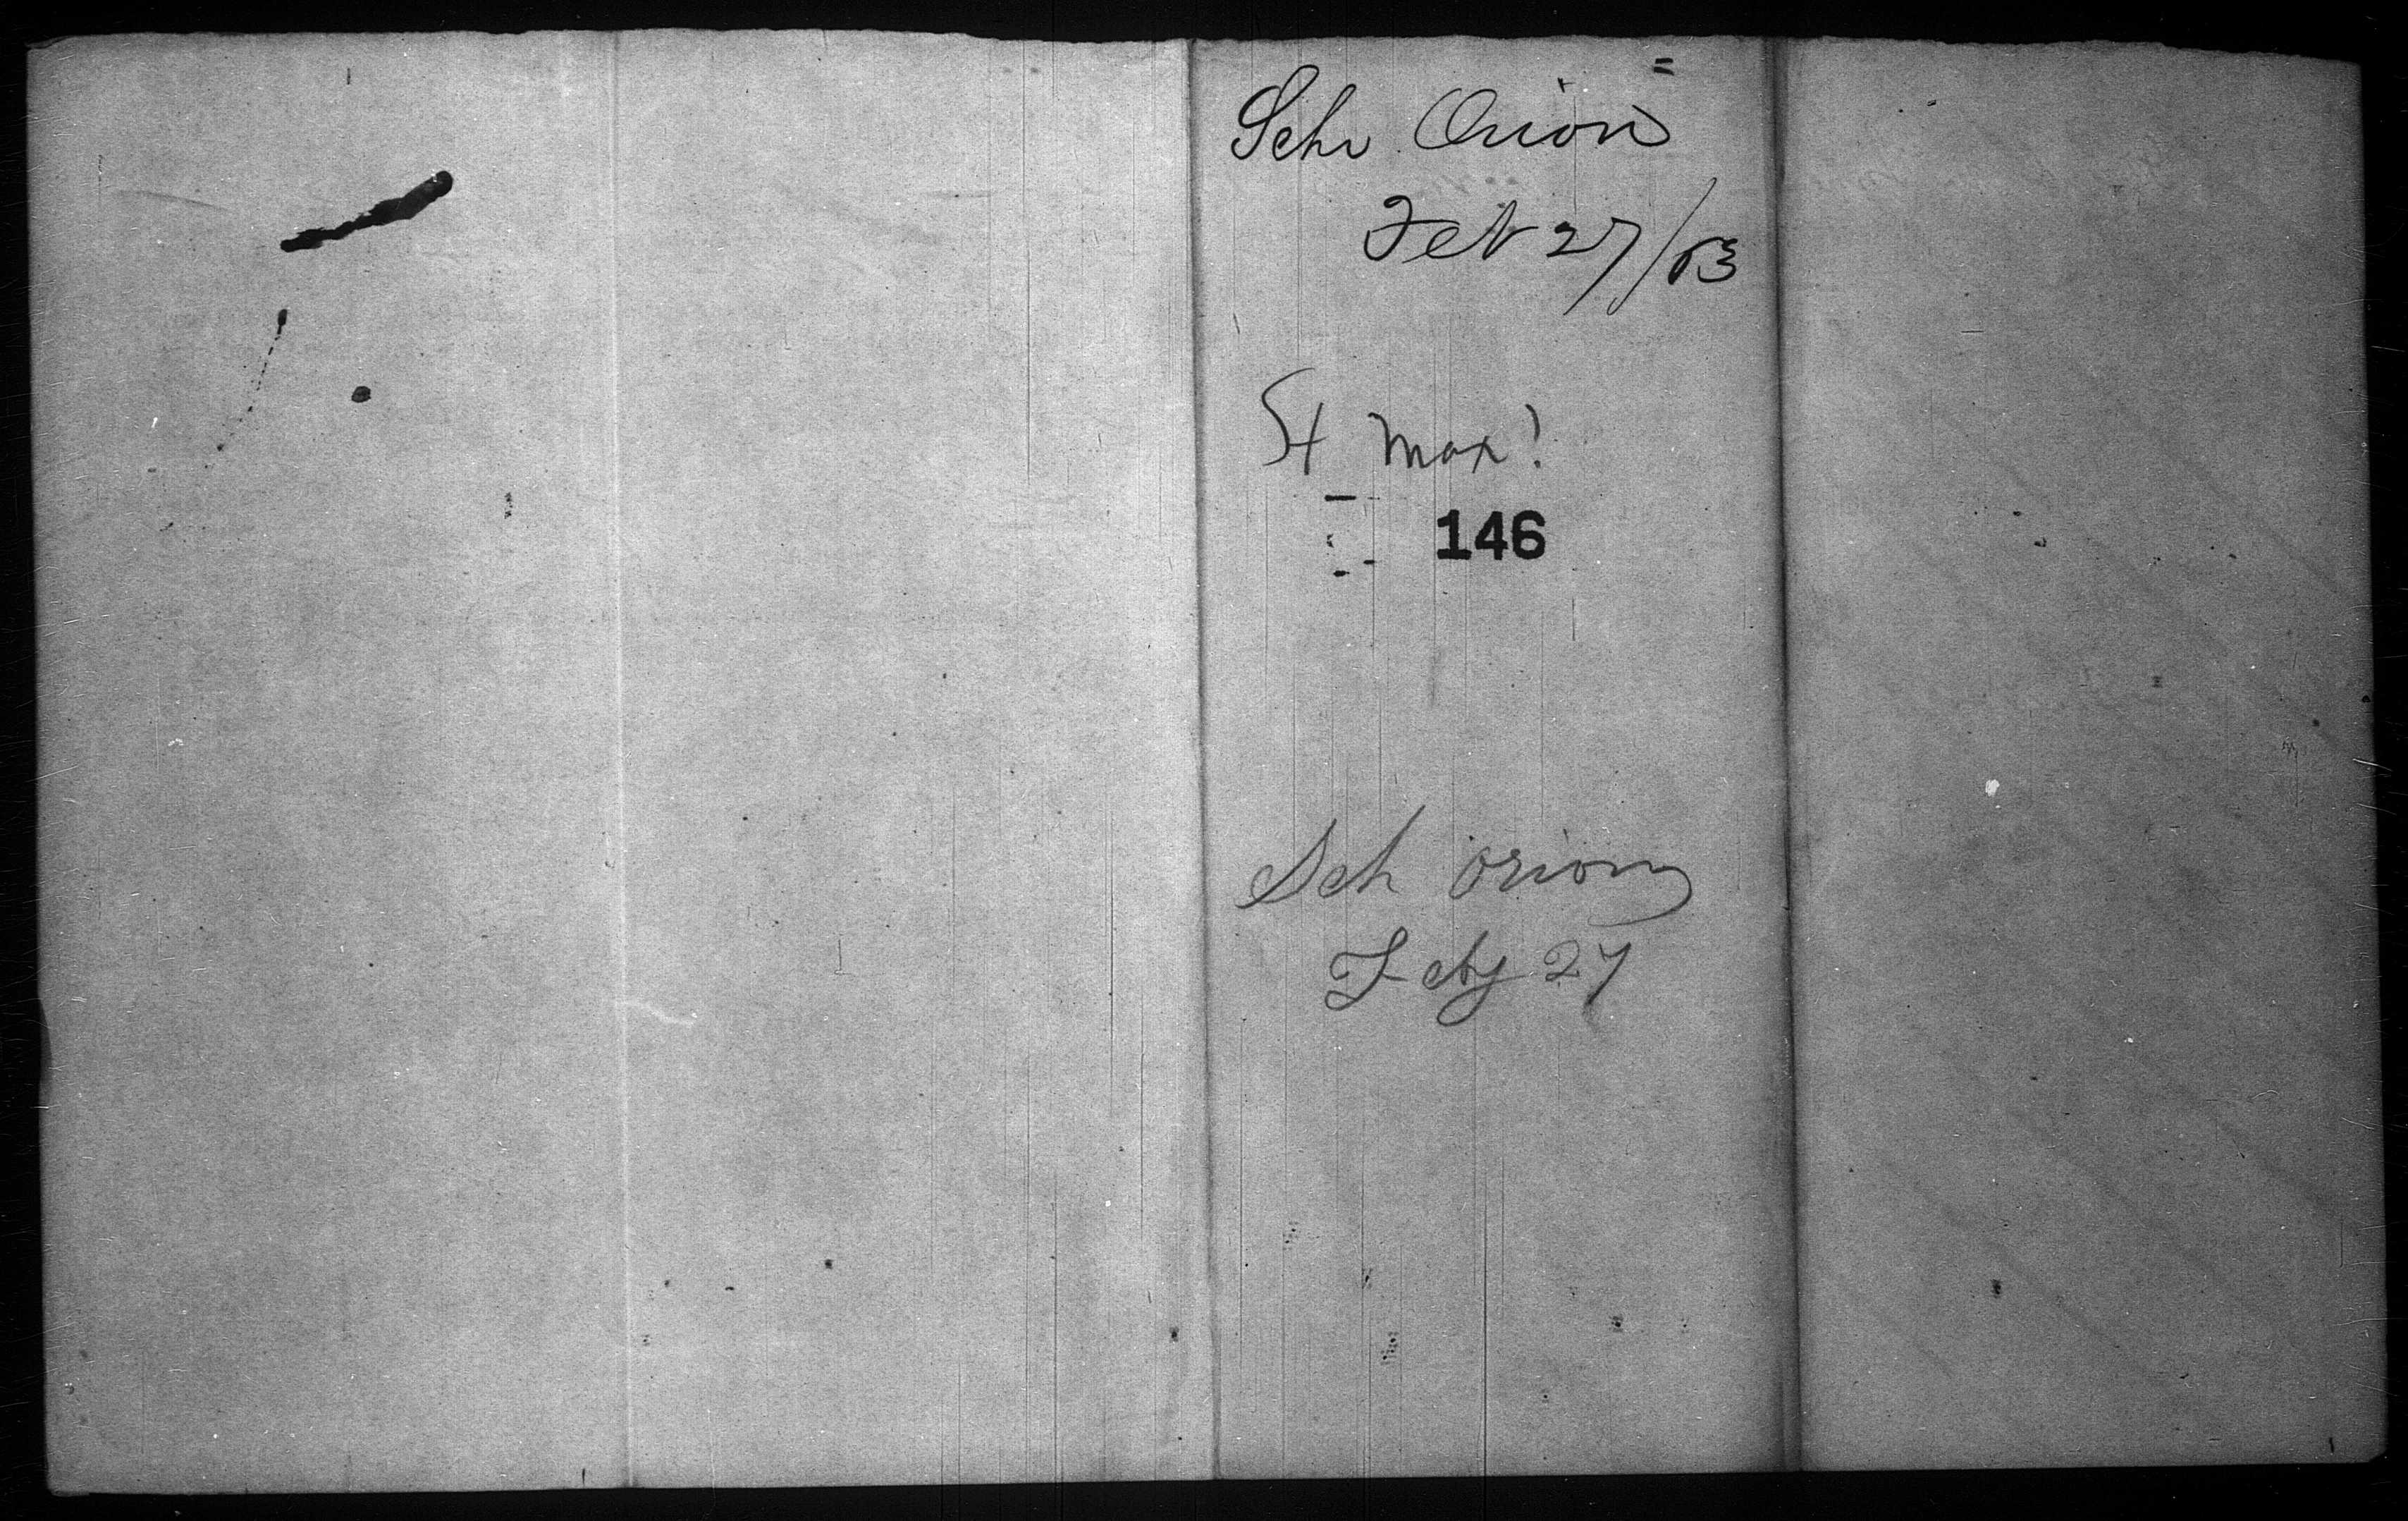 Schr Orion
Feb 27/63
St Max!
146
Sch Orion
Feby 27